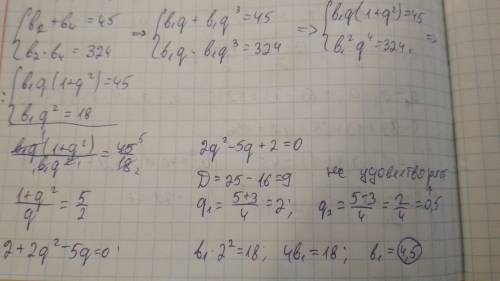 {b₂ + b₄ = 45 ⇒ {b₁q + b₁q³ = 45 ⇒ {b₁q(1+q²) = 45 ⇒
{b₂ · b₄ = 324 {b₁q · b₁q³ = 324 {b₁²q⁴ = 324,
{b₁q(1+q²) = 45
{b₁q² = 18
b₁q(1+q²)/b₁q² = 45⁵/18₂
(1+q²)/q = 5/2
2+2q²-5q=0
2q²-5q+2=0
D=25-16=9 не удовствор
q₁ = (5+3)/4 = 2; q₂ = (5-3)/4 = 2/4 = 0,5
b₁·2²=18; 4b₁=18; b₁=4,5